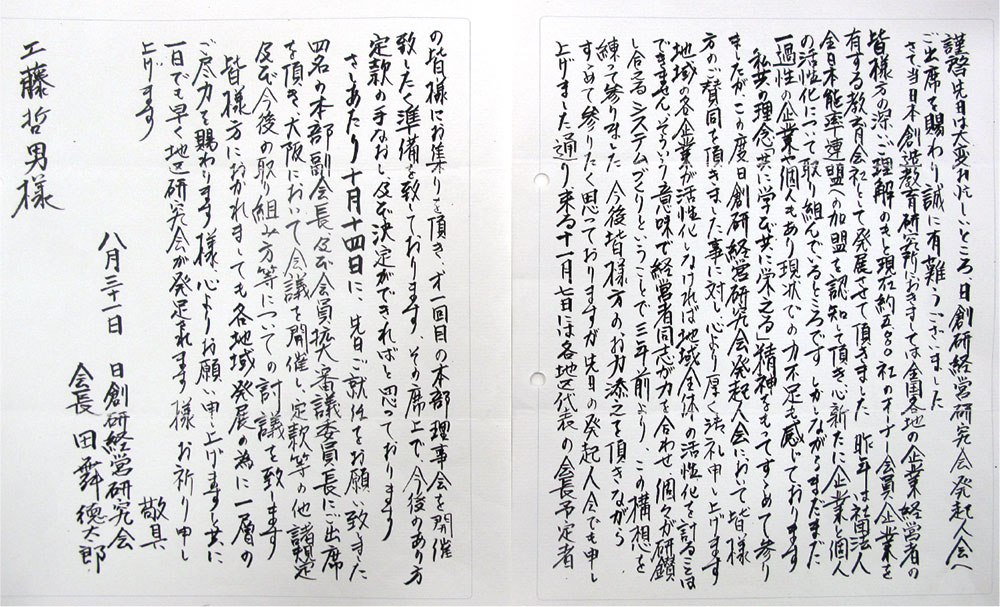 謹啓 先日は大変お忙しいところ日創研経営研究会発起人会へ
ご出席を賜わり誠に有難うございました
さて当日本創造教育研究所におきましては全国各地の企業経営者の
皆様方の深いご理解のもと現在約五〇〇社のオーナー会員企業を
有する教育会社として発展させて頂きました 昨年は社団法人
全日本能率連盟の加盟を認知して頂き心新たに企業と個人
の活性化について取り組んでいるところです しかしながらまだまだ
一過性の企業や個人もあり現状での力不足も感じております
私共の理念「共に学び共に栄える」精神をもってすすめて参り
ましたがこの度日創研経営研究会発起人会において皆様
方のご賛同を頂きました事に対し心より厚く御礼申し上げます
地域の各企業が活性化しなければ地域全体の活性化を計ることは
できません そういう意味で経営者同志が力を合わせ個々が研鑽
し合えるシステムづくりということで三年前より、この構想を
練って参りました 今後皆様方のお力添えを頂きながら
すすめて参りたく思っておりますが先日の発起人会でも申し
上げました通り来る十一月七日には各地区代表の会長予定者
の皆様にお集りを頂き、才一回目の本部理事会を開催
致したく準備を致しております、その席上で、今後のあり方
定款の手なおし及び決定ができればと思っております
さしあたり十月十四日に、先日ご就任をお願い致しました
四名の本部副会長及び会員拡大審議委員長にご出席
を頂き、大阪において会議を開催し、定款等の他諸規定
及び今後の取り組み方等についての討議を致します
皆様方におかれましても各地域発展の為に一層の
ご尽力を賜わります様、心よりお願い申し上げますと共に
一日でも早く地区研究会が発足されます様お祈り申し
上げます
敬具
八月三十一日 日創研経営研究会
会長 田舞徳太郎
工藤哲男様